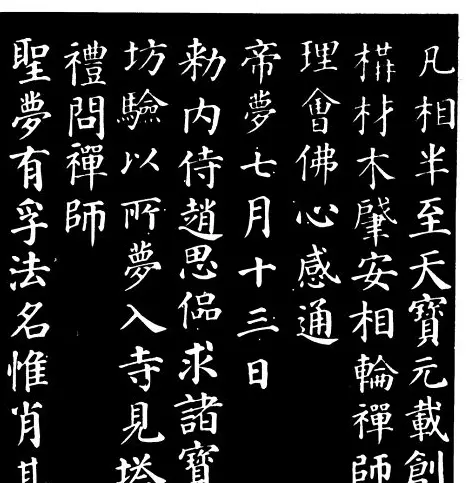 凡相半至天寶元載創
構材木肇安相輪禪師
理會佛心感通
帝夢七月十三日
勑内侍趙思侃求諸寶
坊驗以所夢入寺見塔
禮問禪師
聖夢有孚法名惟肖其